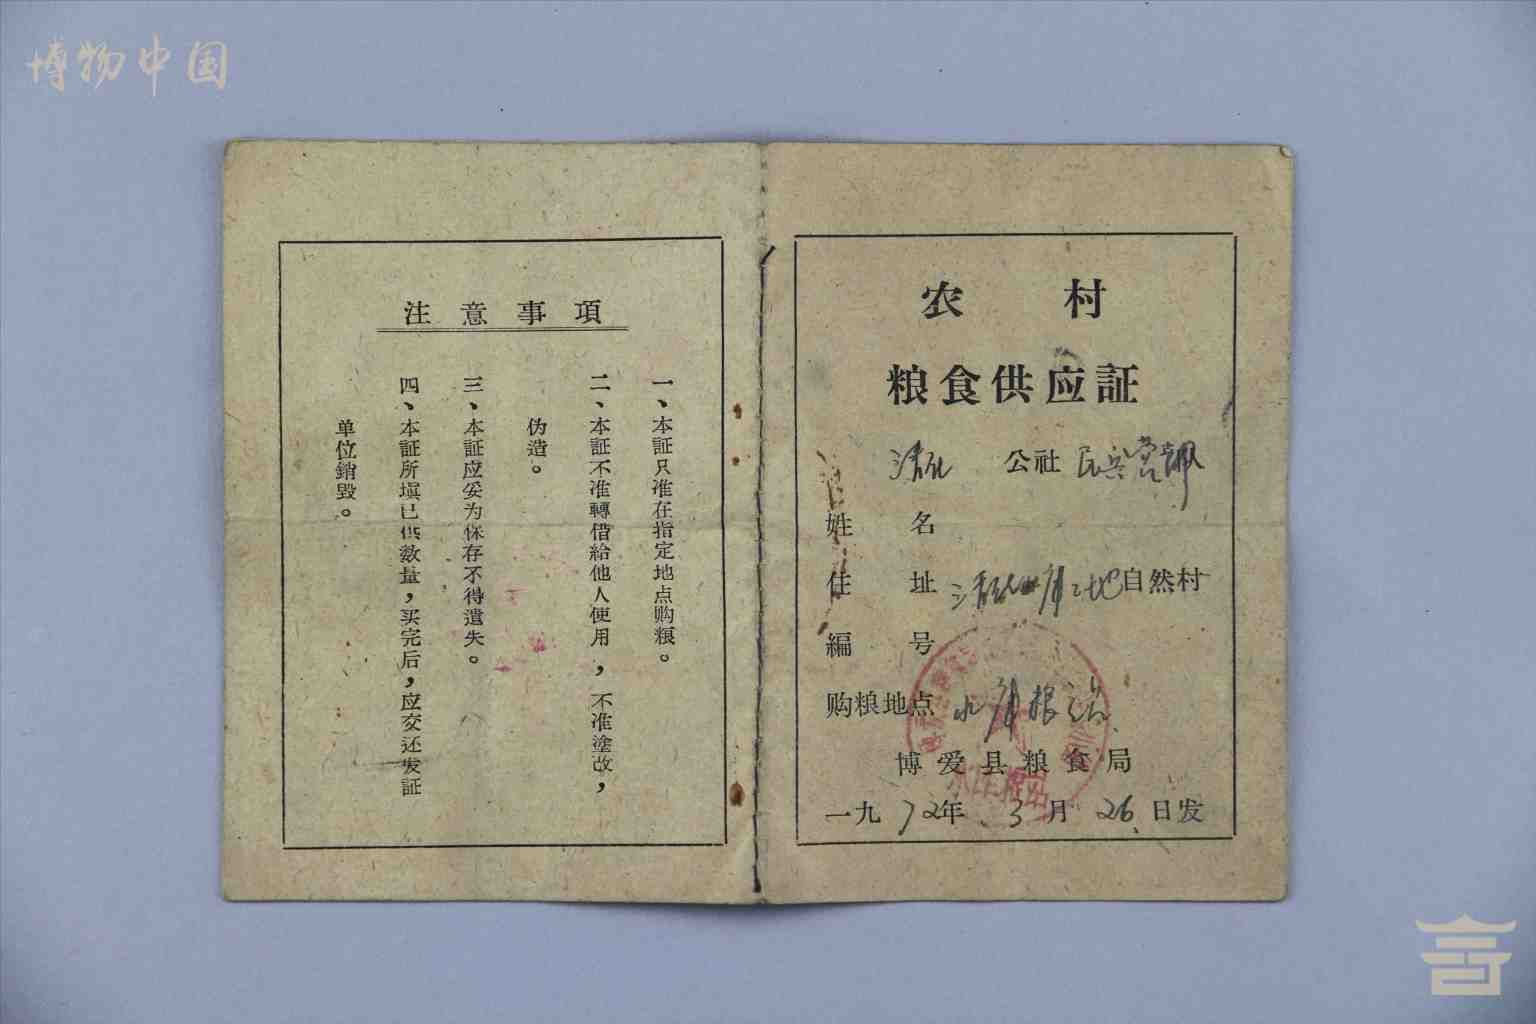 博物中国
注意事項
一、本証只准在指定地点购粮。
二、本証不准轉借給他人使用,不准塗改,
伪造。
三、本証应妥为保存不得遺失。
四、本証所塡已供数量,买完后,应交还发証
单位銷毁。
农村
粮食供应証
清化 公社 民兵营部
姓名
住址 自然村
編号
购粮地点 水库粮站
博爱县粮食局
一九72年3月26日发